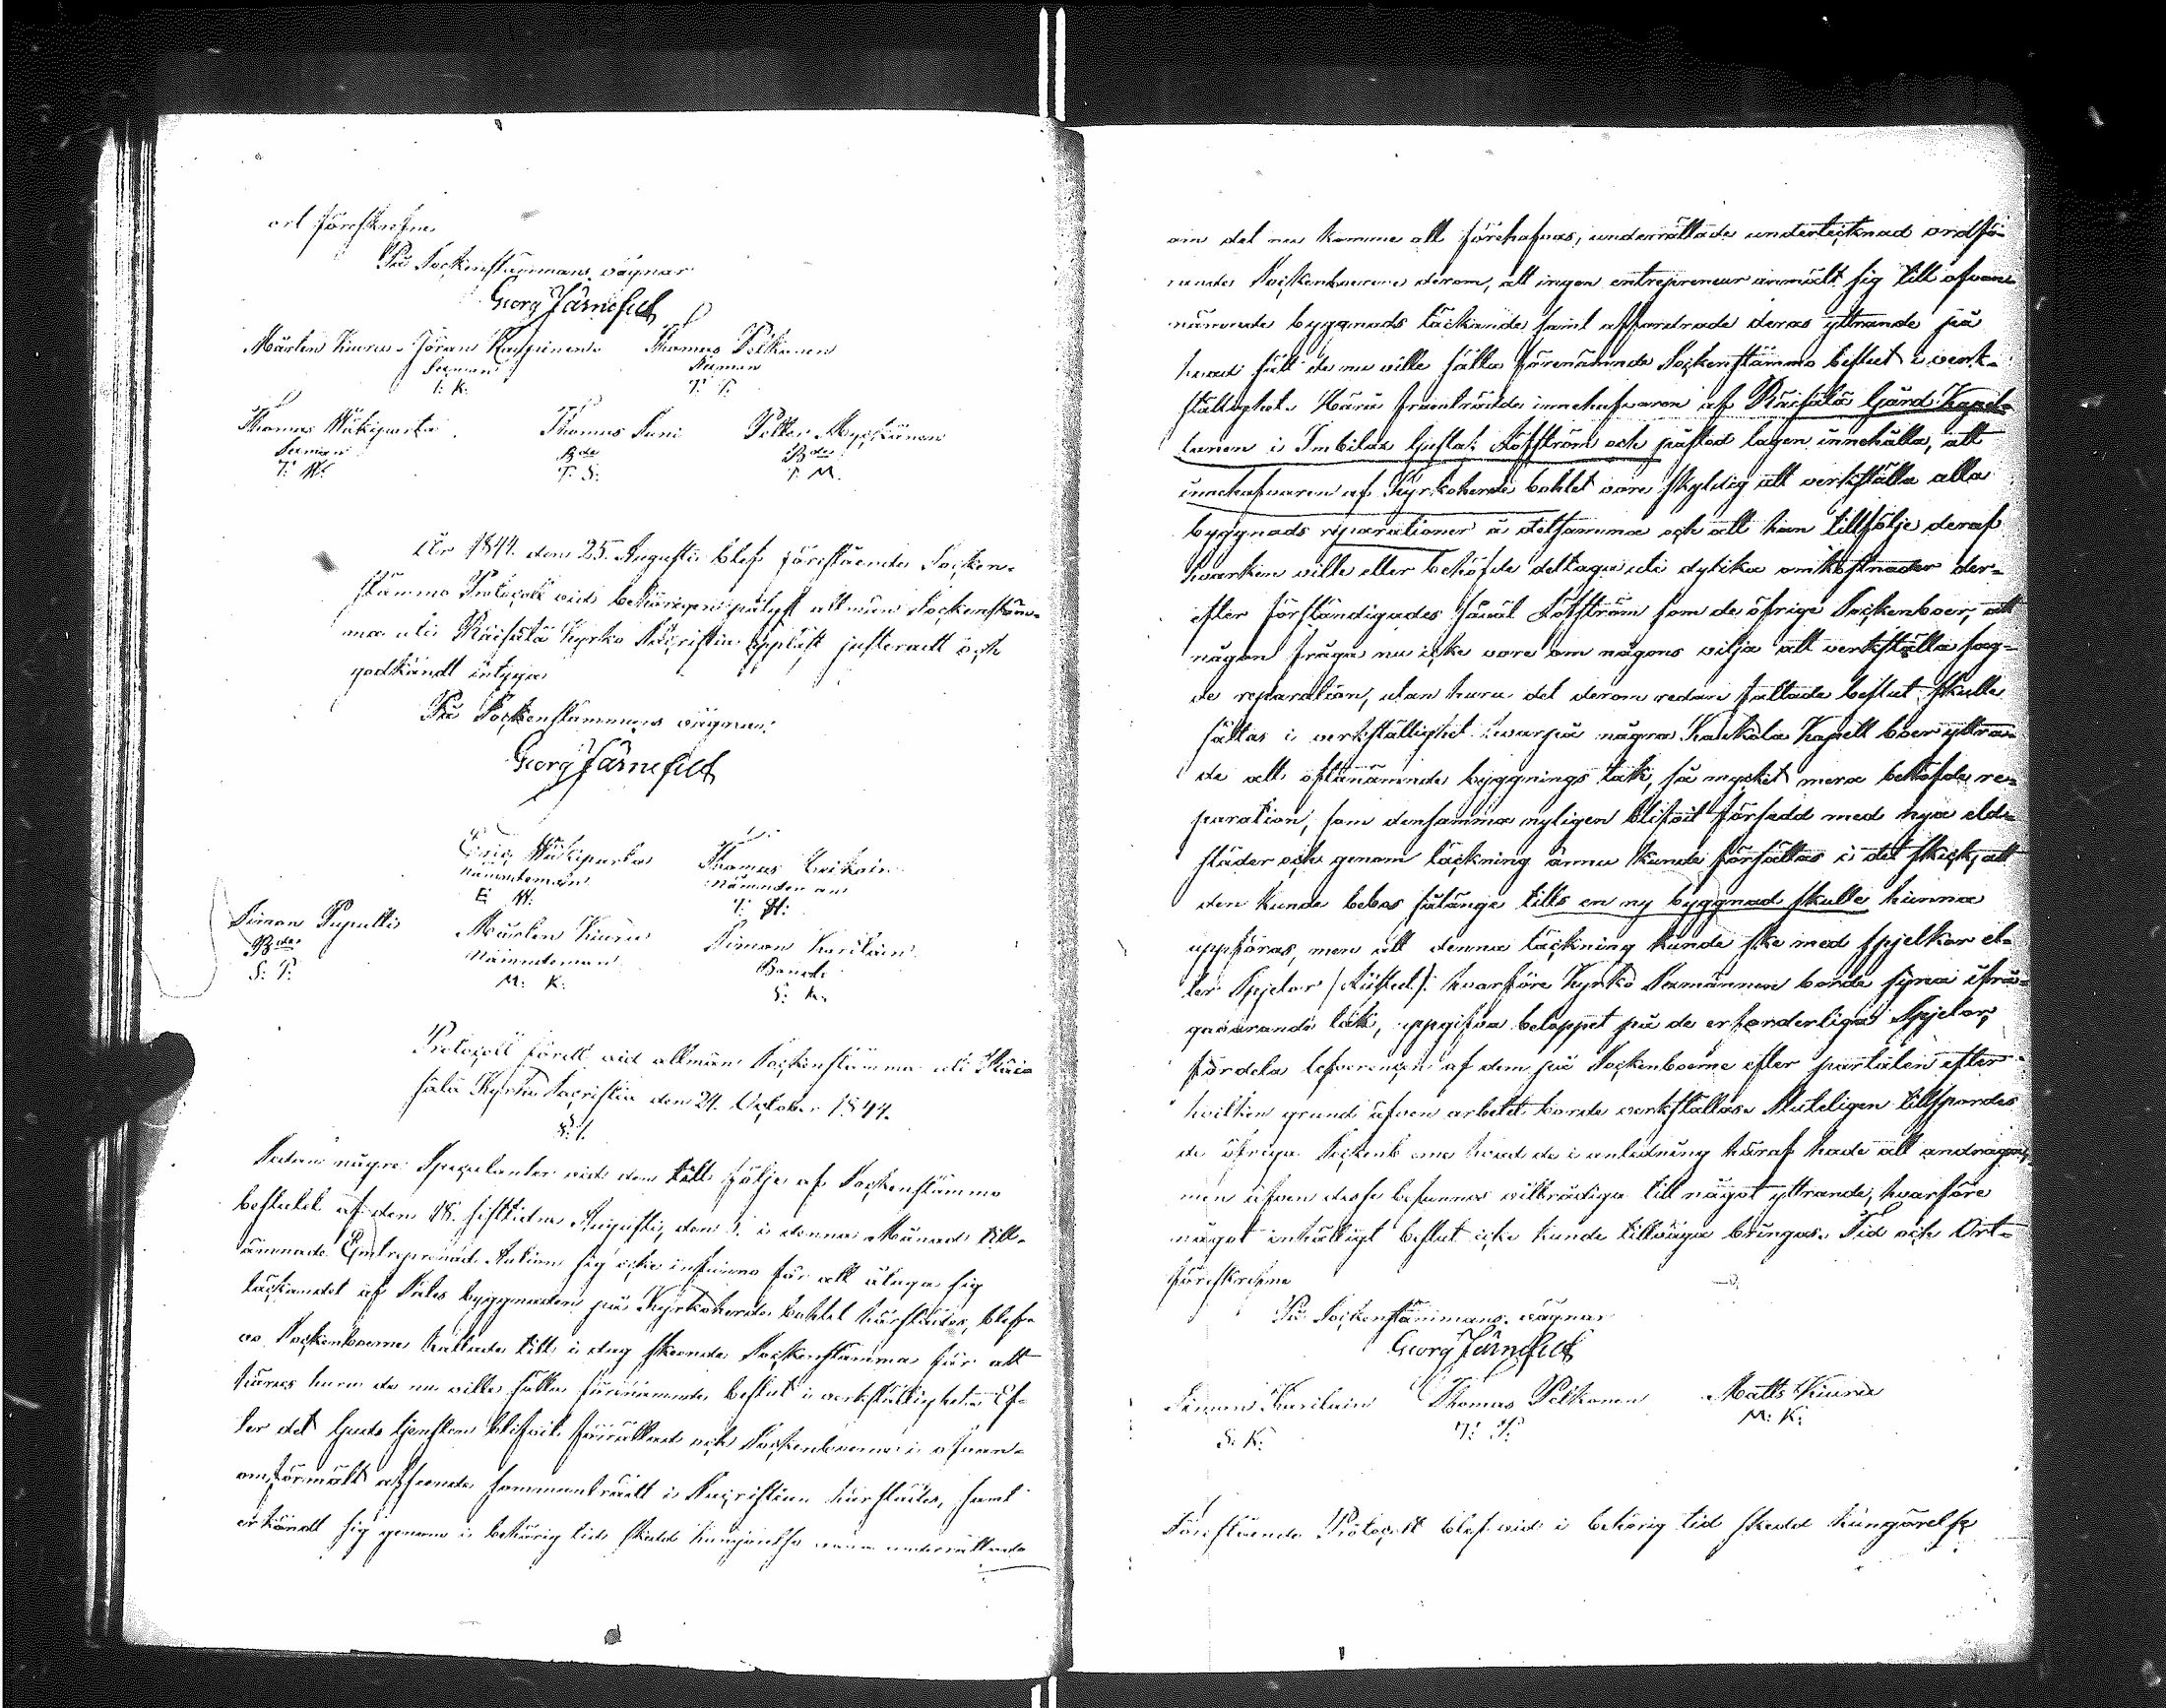 ort föreskrefne
På Sockenstämmans vägnar
Georg Järnefelt
Mårten Kiuru Jöran Räisänen Thomas Pelkonen
Sexman Sexman
I: R. T: P.
Thomas Mükiparta Thomas Suni Petter Myöhänen
Sexman Bde Bde
T: M: T: S: P: M.
År 1844. den 25. Augusti blef förestående Socken-
stämmo Protocoll vid behörigen pålyst allmän Sockenstäm-
ma uti Räisälä Kyrko Sacristia uppläst justeradt och
godkändt intyga
På Sockenstämmans vägnar:
Georg Järnefelt
Eric Mükiparta Thomas
Nämndeman Nämndeman
E: M: T: H:
Simon Pupulti Mårten Kiuru Simon Karilain
Bde Nämndeman Bonde
S: P. M: K: S: K:
Protocoll fördt vid allmän Sockenstämma uti Räi-
sälä Kyrko Sacristia den 24. October 1844.
S: 1.
Sedan någre Speculanter vid den till följe af Sockenstämmo
beslutet af den 18. sistlidne Augusti, den 5. i denna Månad till-
ämnade Entreprenad Auktion sig icke infunno för att åtaga sig
täckandet af Sales byggnaden på Kyrkoherde bohlet härstädes, blef-
vo Sockenboerne kallade till i dag skeende Sockenstämma för att
höras huru de nu ville ställa förenämnde beslut i verkställighet. Ef-
ter det Guds tjensten blifvit förrättad och Sockenboerne i ofvan-
omförmält afseende sammanträdt i Sacristian härstädes, samt
erkändt sig genom i behörig tid skedd kungörelse vara underrättade
om det nu komme att förehafvas, underrättade undertecknad ordfö-
rande Sockenboerne derom, att ingen entrepreneur anmält sig till ofvan-
nämnde byggnads täckande samt affordrade deras yttrande på
hvad sätt de nu ville ställa förenämnde Sockenstämmo beslut i verk-
ställighet. Härå framträdde innehafvaren af Räisälä Gård Kapel-
lanen i Imbilax Gustaf Löfström och påstod lagen innehålla, att
innehafvaren af Kyrkoherde bohlet vore skyldig att verkställa alla
byggnads reparationer å detsamma och att han tillfölje deraf
hvarken ville eller behöfde deltaga uti dylika omkostnader der-
efter förständigades såväl Löfström som de öfrige Sockenboer, att
någon fråga nu icke vore om någons vilja att verkställa sag-
de reparation, utan huru det derom redan fattade beslut skulle
sättas i verkställighet hvarpå någre Kaukola Kapell boer yttra-
de att oftanämnde byggnings tak, så mycket mera behöfde re-
paration, som densamma nyligen blifvit försedd med nya eld-
städer och genom täckning ännu kunde försättas i det skick, att
den kunde bebos sålänge tills en ny byggnad skulle hinna
uppföras, men att denna täckning kunde ske med spjelkor el-
ler Spjelor /:Lüsted:/ hvarföre Kyrko Sexmännen borde syna ifrå-
gavarande tak, uppgifva beloppet på de erforderliga Spjelor,
fördela lefverencen af dem på Sockenboerne efter partalen efter
hvilken grund äfven arbetet borde verkställas. Slutligen tillspordes
de öfriga Sockenboerne hvad de i anledning häraf hade att andraga,
men äfven desse befunnos villrådiga till något yttrande, hvarföre
något enhälligt beslut icke kunde tillväga bringas. Tid och Ort-
föreskrefne
På Sockenstämmans vägnar
Georg Järnefelt
Simon Karilain Thomas Pelkonen Matts Kiuru
S: K: T: P. M: K:
Förestående Protocoll blef vid i behörig tid skedd kungörelse